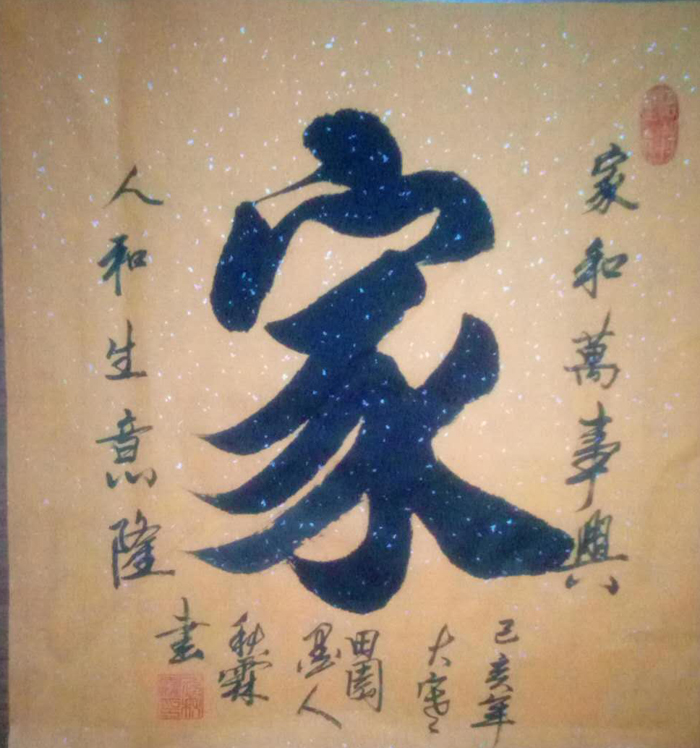 家和萬事興
家
人和生意隆
己亥年
大寒
田園
墨人
秋霖
書